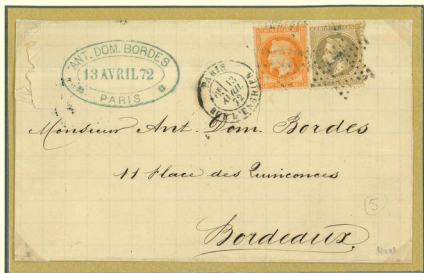 ANT. DOM. BORDES
13 AVRIL 72
PARIS
PARIS
13
AVRIL
72
Monsieur Ant. Dom. Bordes
11 Place des Quinconces
Bordeaux
5